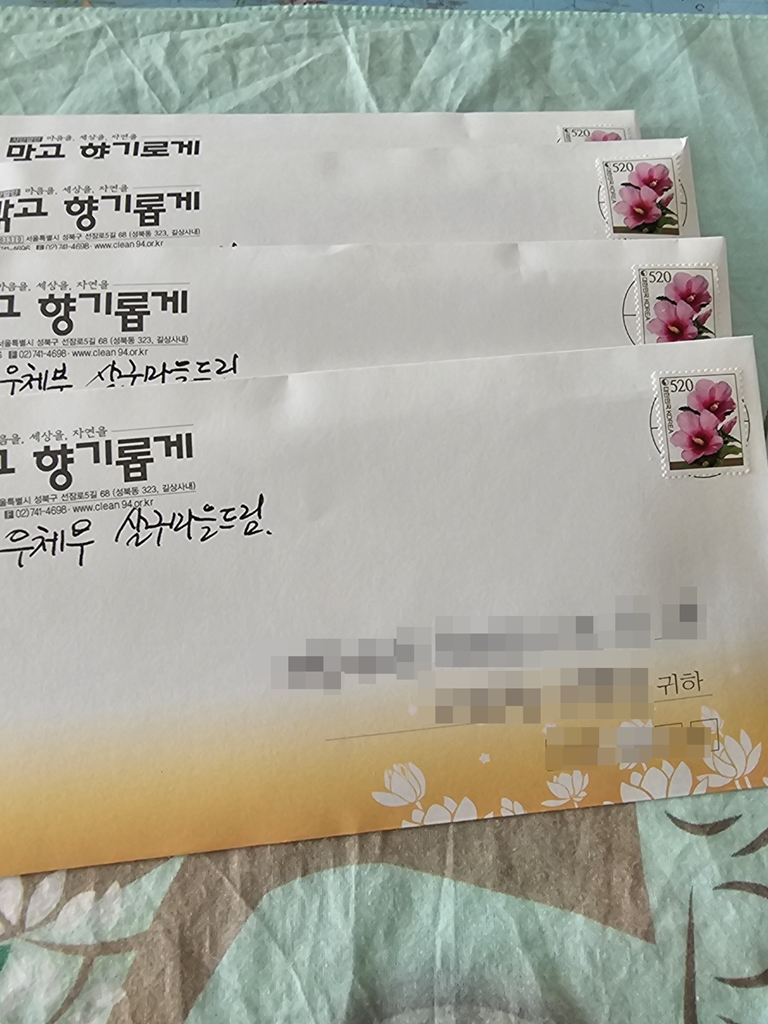 마음을, 세상을, 자연을
맑고 향기로게
520
마음을, 세상을, 자연을
맑고 향기롭게
서울특별시 성북구 선잠로5길 68 (성북동 323, 길상사내)
02)741-4698 · www.clean94.or.kr
520
대한민국 KOREA
마음을, 세상을, 자연을
고 향기롭게
서울특별시 성북구 선잠로5길 68 (성북동 323, 길상사내)
F 02)741-4698 · www.clean94.or.kr
우체부 살구마을드림
520
대한민국 KOREA
음을, 세상을, 자연을
고 향기롭게
울특별시 성북구 선잠로5길 68 (성북동 323, 길상사내)
F 02)741-4698 · www.clean94.or.kr
우체부 살구마을드림.
520
대한민국 KOREA
귀하